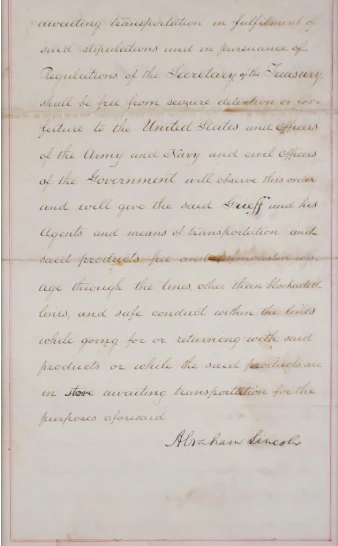 awaiting transportation in fulfilment of
said stipulations and in pursuance of
Regulations of the Secretary of the Treasury
shall be free from seizure detention or for=
feiture to the United States and Officers
of the Army and Navy and civil Officers
of the Government will observe this order
and will give the said Grieff and his
Agents and means of transportation and
said products free and
age through the lines, other than blockaded
lines, and safe conduct within the lines
while going for or returning with said
products or while the said products are
in store awaiting transportation for the
purposes aforesaid
Abraham Lincoln